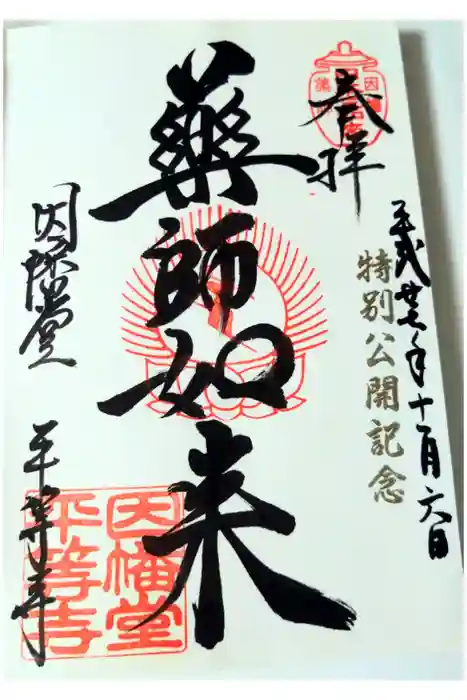 奉拝
平成廿七年十一月六日
特別公開記念
藥師如来
因幡堂
平等寺
因幡堂
平等寺